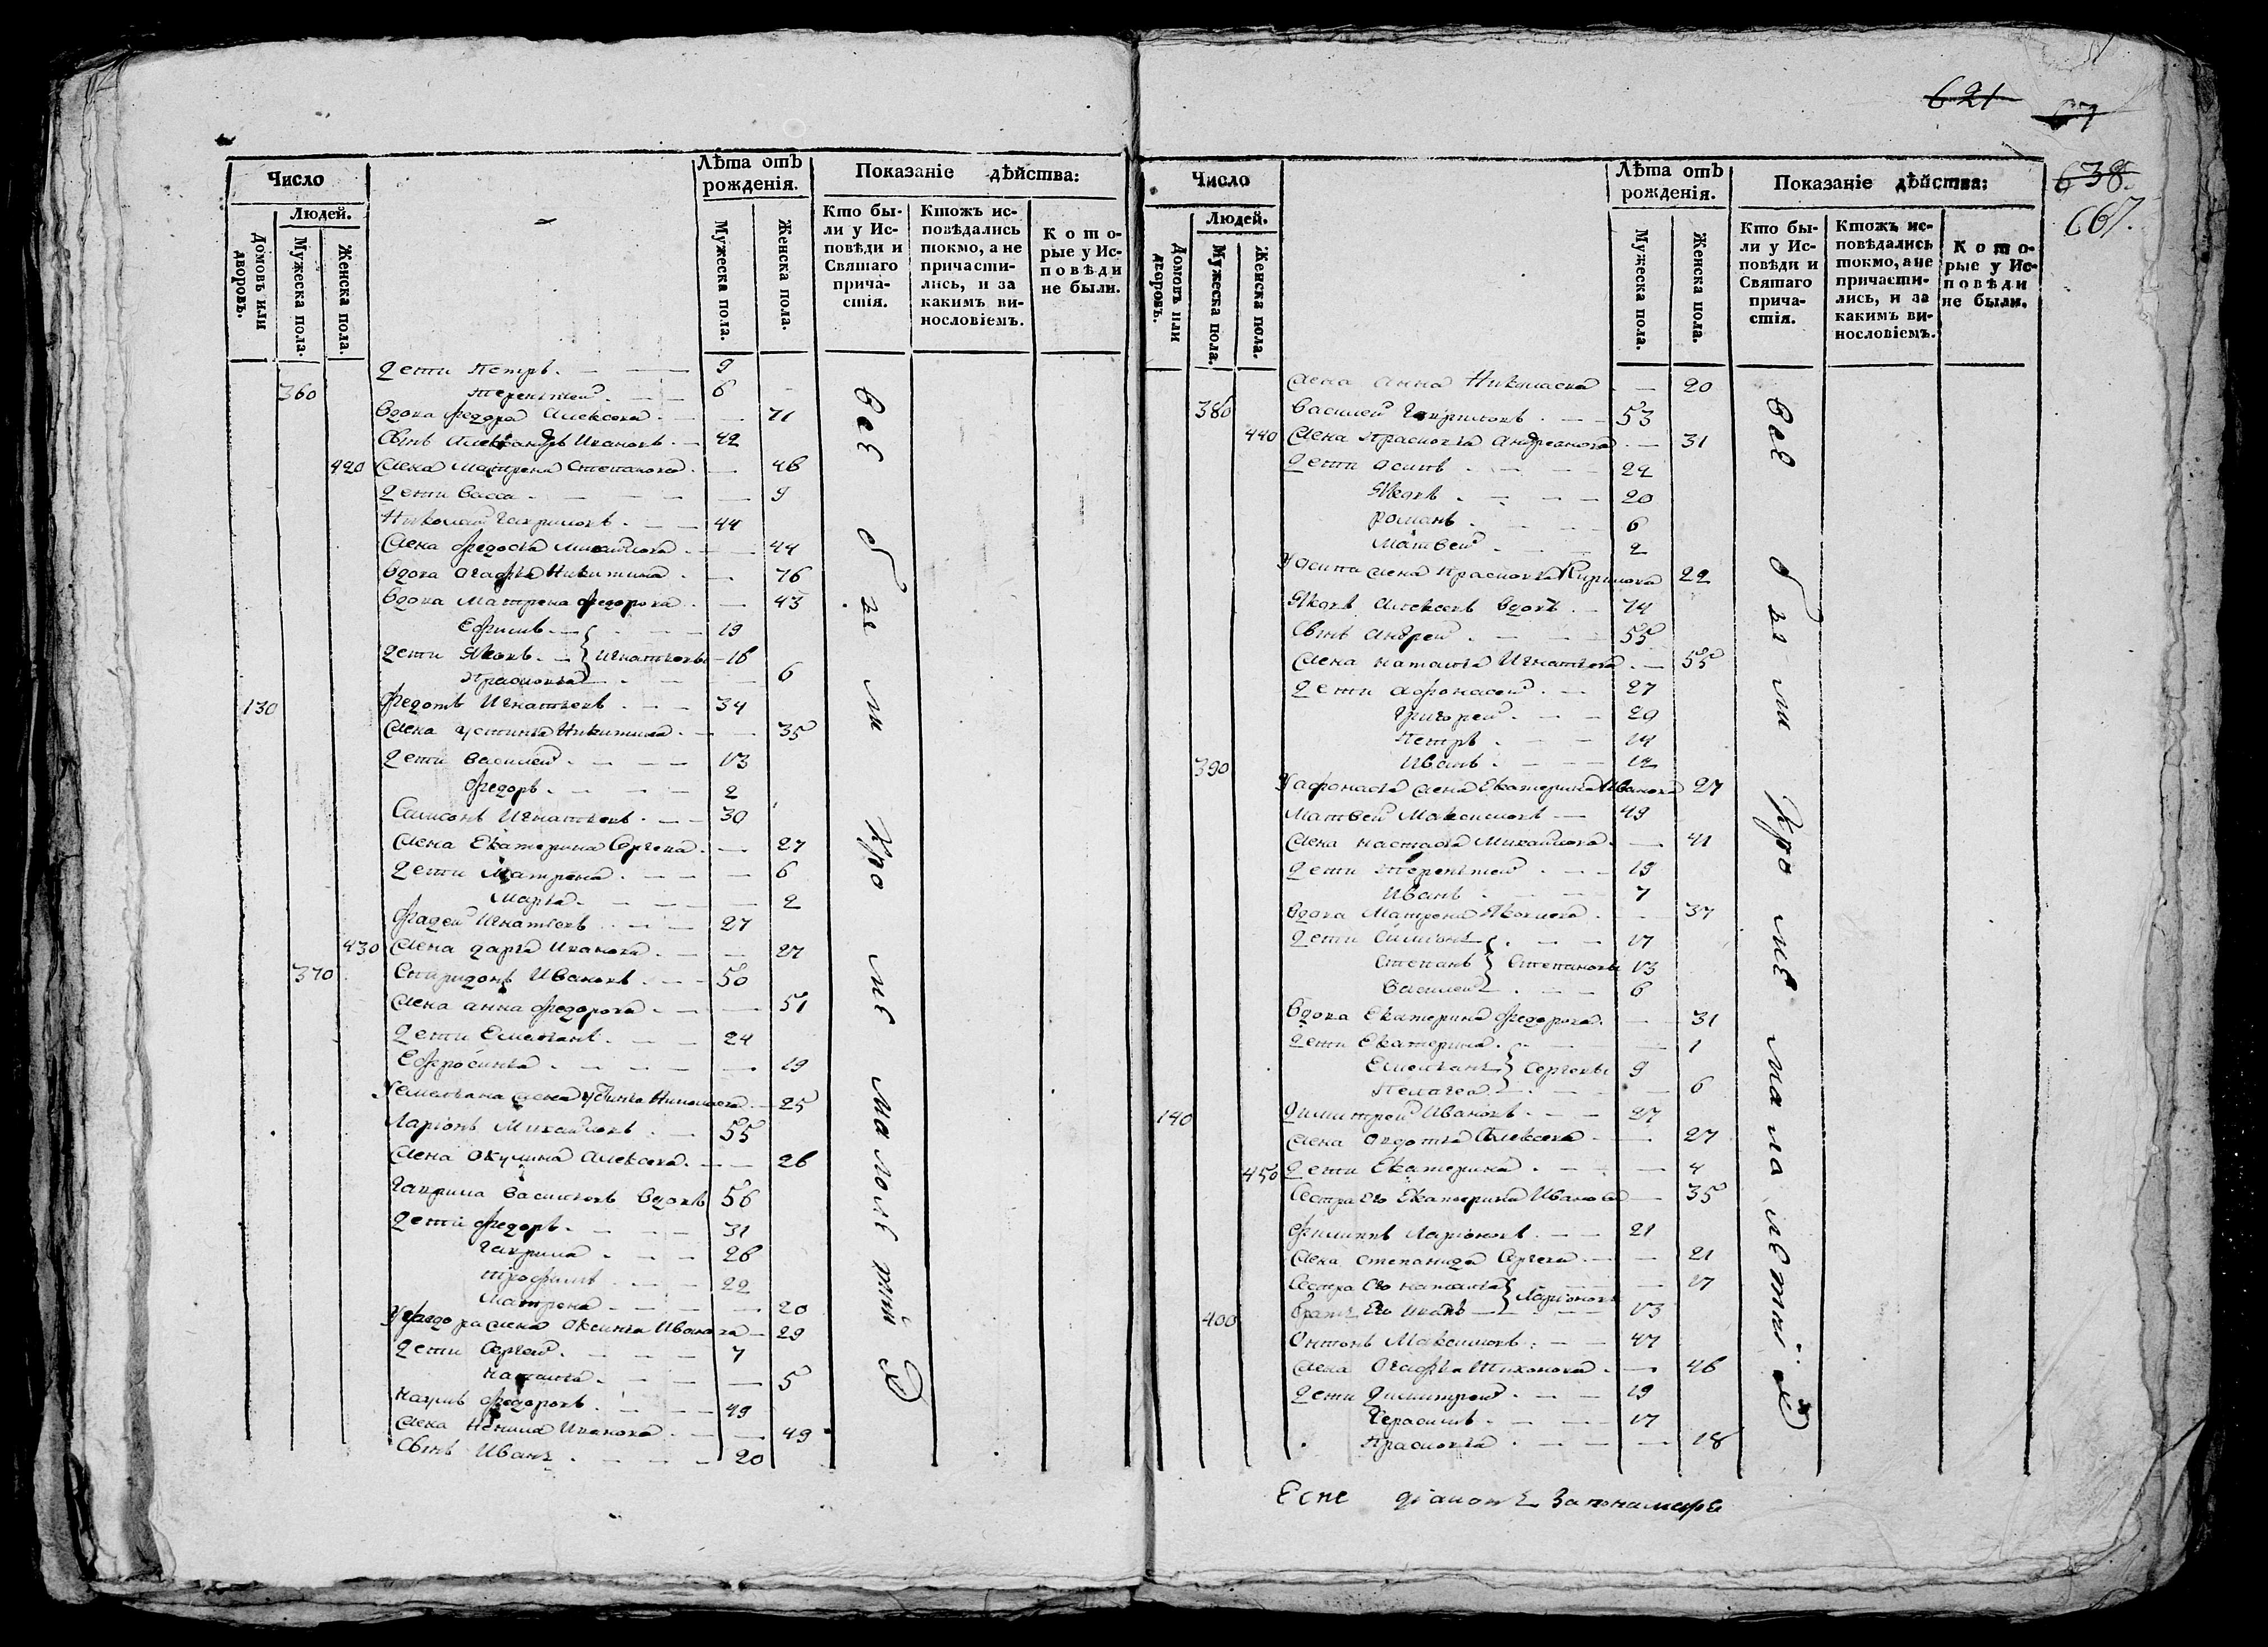 621
67
638.
667.
Число
Людей.
Домовъ или дворовъ.
Мужеска пола.
Женска пола.
Лѣта отъ рожденія.
Мужеска пола.
Женска пола.
Показаніе дѣйства:
Кто бы-
ли у Ис-
повѣди и
Святаго
прича-
стія.
Ктожъ ис-
повѣдались
токмо, а не
причасти-
лись, и за
какимъ ви-
нословіемъ.
Кото-
рые у Ис-
повѣди
не были.
дети Петръ 9
360 Терентей 6
вдова Федора Алексева 71
Сынъ Александръ Ивановъ 42
420 Жена Матрена Степанова 46
дети Васса 9
Николай Гавриловъ 44
Жена Федосья Михайлова 44
вдова Агафья Никитина 76
вдова Матрена Федорова 43
Ефимъ 19
дети Яковъ Игнатьевы 16
Прасковья 6
130 Федотъ Игнатьевъ 34
Жена Устинья Никитина 35
дети Василей 13
Федоръ 2
Самсонъ Игнатьевъ 30
Жена Екатерина Сергева 27
дети Матрена 6
Марья 2
Фадей Игнатьевъ 27
430 Жена дарья Иванова 27
370 Спиридонъ Ивановъ 50
Жена анна Федорова 51
дети Емельянъ 24
Ефросинья 19
У Емельяна жена Устинья Николаева 25
Ларіонъ Михайловъ 55
Жена Окулина Алексева 26
Гаврила Васильевъ вдовъ 56
дети Федоръ 31
Гаврила 26
Трофимъ 22
Матрена 20
У Федора жена Оксинья Иванова 29
дети Сергей 7
Наталья 5
Наумъ Федоровъ 49
Жена Ненила Иванова 49
Сынъ Иванъ 20
все были кроме малолетній
Число
Людей.
Домовъ или дворовъ.
Мужеска пола.
Женска пола.
Лѣта отъ рожденія.
Мужеска пола.
Женска пола.
Показаніе дѣйства:
Кто бы-
ли у Ис-
повѣди и
Святаго
прича-
стія.
Ктожъ ис-
повѣдались
токмо, а не
причасти-
лись, и за
какимъ ви-
нословіемъ.
Кото-
рые у Ис-
повѣди
не были.
Жена Анна Николаева 20
380 Василей Гавриловъ 53
440 Жена Прасковья Андреанова 31
дети осипъ 24
Яковъ 20
Романъ 6
Матвей 2
У осипа жена Прасковья Кирилова 22
Яковъ Алексевъ вдовъ 74
Сынъ Андрей 55
Жена Наталья Игнатьева 55
дети Афонасей 27
Григорей 20
Петръ 14
390 Иванъ 12
У афонасья жена Екатерина Иванова 27
Матвей Максимовъ 49
Жена Настасья Михайлова 41
дети Терентей 19
Иванъ 7
вдова Матрена Яковлева 37
дети Симіонъ 17
Степанъ Степановы 13
Василей 6
вдова Екатерина Федорова 31
дети Екатерина 1
Емельянъ Сергевы 9
Пелагея 6
140 Димитрей Ивановъ 27
Жена Авдотья Алексева 27
450 дети Екатерина 4
Сестра Его Екатерина Иванова 35
Филиппъ Ларіоновъ 21
Жена Степанида Сергева 21
Сестра Его Наталья Ларіоновы 17
400 братъ Его Иванъ 13
Антонъ Максимовъ 47
Жена Агафья Тихонова 46
дети Димитрей 19
Герасимъ 17
Прасковья 18
все были кроме малалетній
діаконъ За пономаря